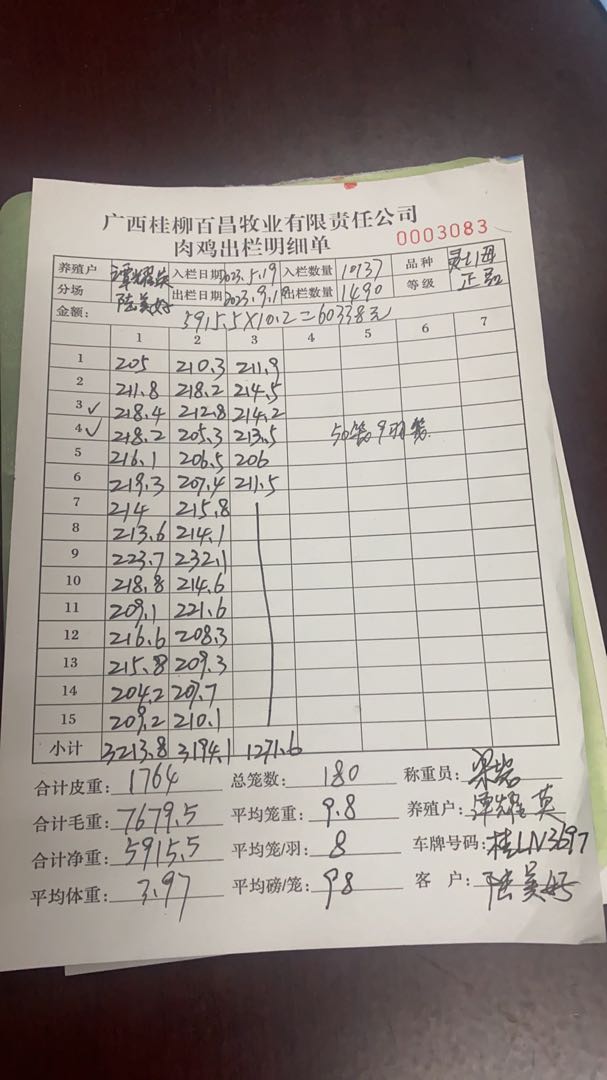 广西桂柳百昌牧业有限责任公司
肉鸡出栏明细单 0003083
养殖户 谭耀英 入栏日期 2023.5.19 入栏数量 10737 品种
分场 陆美好 出栏日期 2023.9.18 出栏数量 1490 等级 正品
金额: 5915.5×10.2=60338元
1 2 3 4 5 6 7
1 205 210.3 211.9
2 211.8 218.2 214.5
3 ✓ 218.4 212.8 214.2
4 ✓ 218.2 205.3 213.5 50笼9羽笼
5 216.1 206.5 206
6 219.3 207.4 211.5
7 214 215.8
8 213.6 214.1
9 223.7 232.1
10 218.8 214.6
11 209.1 221.6
12 216.6 208.3
13 215.8 209.3
14 204.2 207.7
15 209.2 210.1
小计 3213.8 3194.1 1271.6
合计皮重: 1764 总笼数: 180 称重员:
合计毛重: 7679.5 平均笼重: 9.8 养殖户: 谭耀英
合计净重: 5915.5 平均笼/羽: 8 车牌号码: 桂LN3697
平均体重: 3.97 平均磅/笼: 98 客户: 陆美好